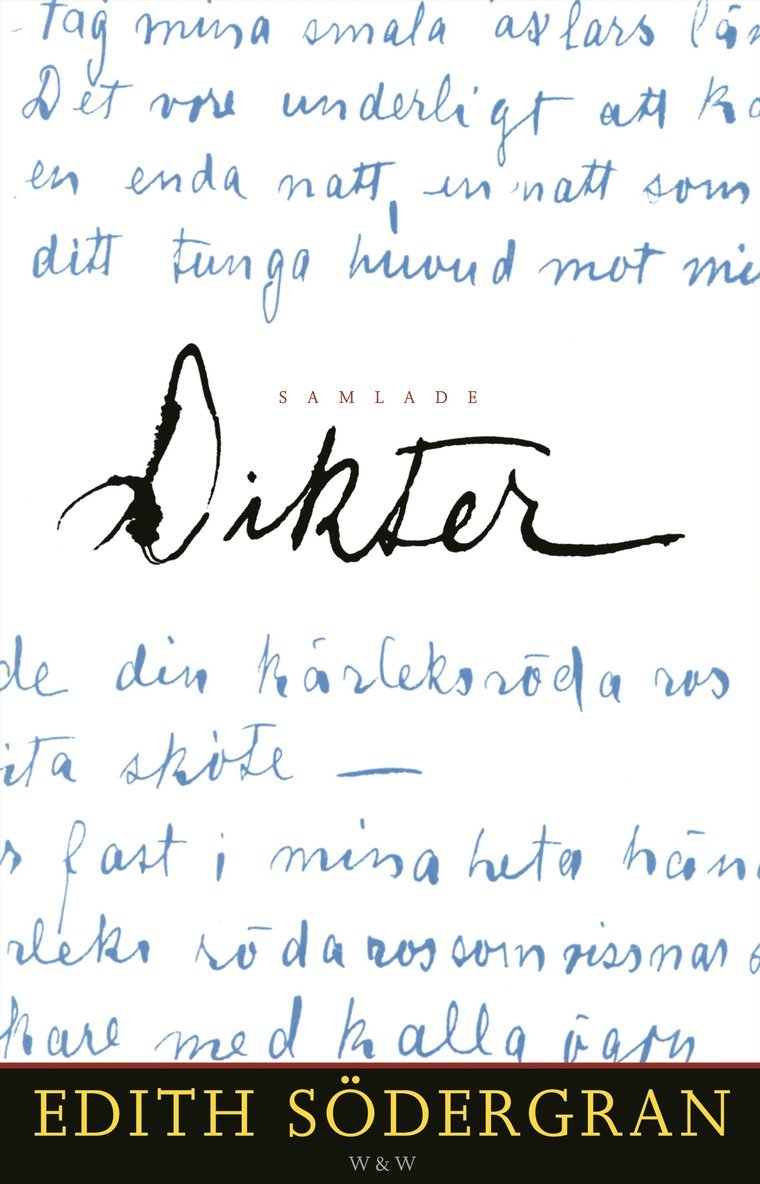 tag mina smala axlars län
Det vore underligt att ko
en enda natt, en natt som
ditt tunga huvud mot mi
SAMLADE
Dikter
de din kärleksröda ros
ita sköte —
r fast i mina heta hän
rleks röda ros som vissnar s
kare med kalla ögon
EDITH SÖDERGRAN
W & W